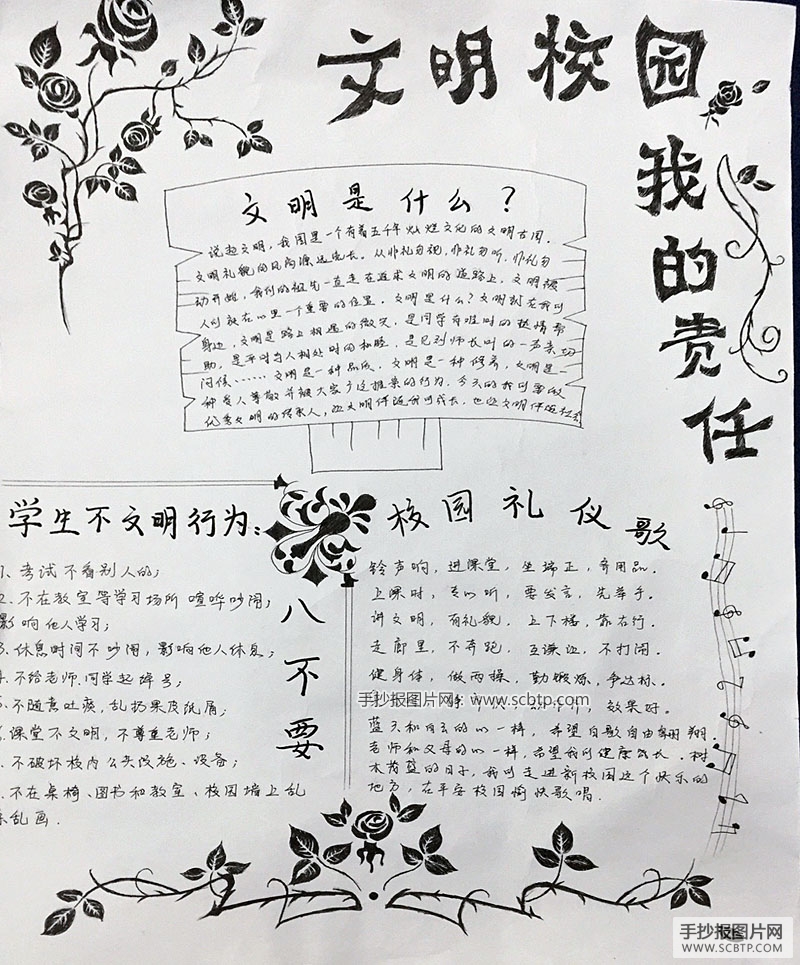 文明校园
我的责任
文明是什么？
说起文明，我国是一个有着五千年灿烂文化的文明古国。
文明礼貌的风尚源远流长。从非礼勿视，非礼勿听，非礼勿
动开始，我们的祖先一直走在追求文明的道路上，文明被
人们放在心里一个重要的位置。文明是什么？文明就在我们
身边，文明是路上相遇的微笑，是同学有难时的热情帮
助，是平时与人相处时的和睦，是见到师长时的一声亲切
问候……文明是一种品质，文明是一种修养，文明是一
种受人尊敬并被大家广泛推崇的行为。今天的我们要做
优秀文明的传承人，让文明伴随我们成长，也让文明伴随社会
学生不文明行为：
1、考试不看别人的；
2.不在教室等学习场所喧哗吵闹，
影响他人学习；
3.休息时间不吵闹，影响他人休息；
不给老师.同学起绰号；
不随意吐痰，乱扔果皮纸屑；
课堂不文明，不尊重老师；
不破坏校内公共设施、设备；
不在桌椅、图书和教室、校园墙上乱
乱画.
八不要
校园礼仪歌
铃声响，进课堂，坐端正，齐用品。
上课时，专心听，要发言，先举手。
讲文明，有礼貌，上下楼，靠右行。
走廊里，不奔跑，互谦让，不打闹。
健身体，做两操，勤锻炼，争达标。
效果好。
手抄报图片网：www.scbtp.com
蓝天和白云的心一样，希望白鸽自由翱翔.
老师和父母的心一样，希望我们健康成长。树
木荫蓝的日子，我们走进新校园这个快乐的
地方，在平安校园愉快歌唱.
手抄报图片网
WWW.SCBTP.COM